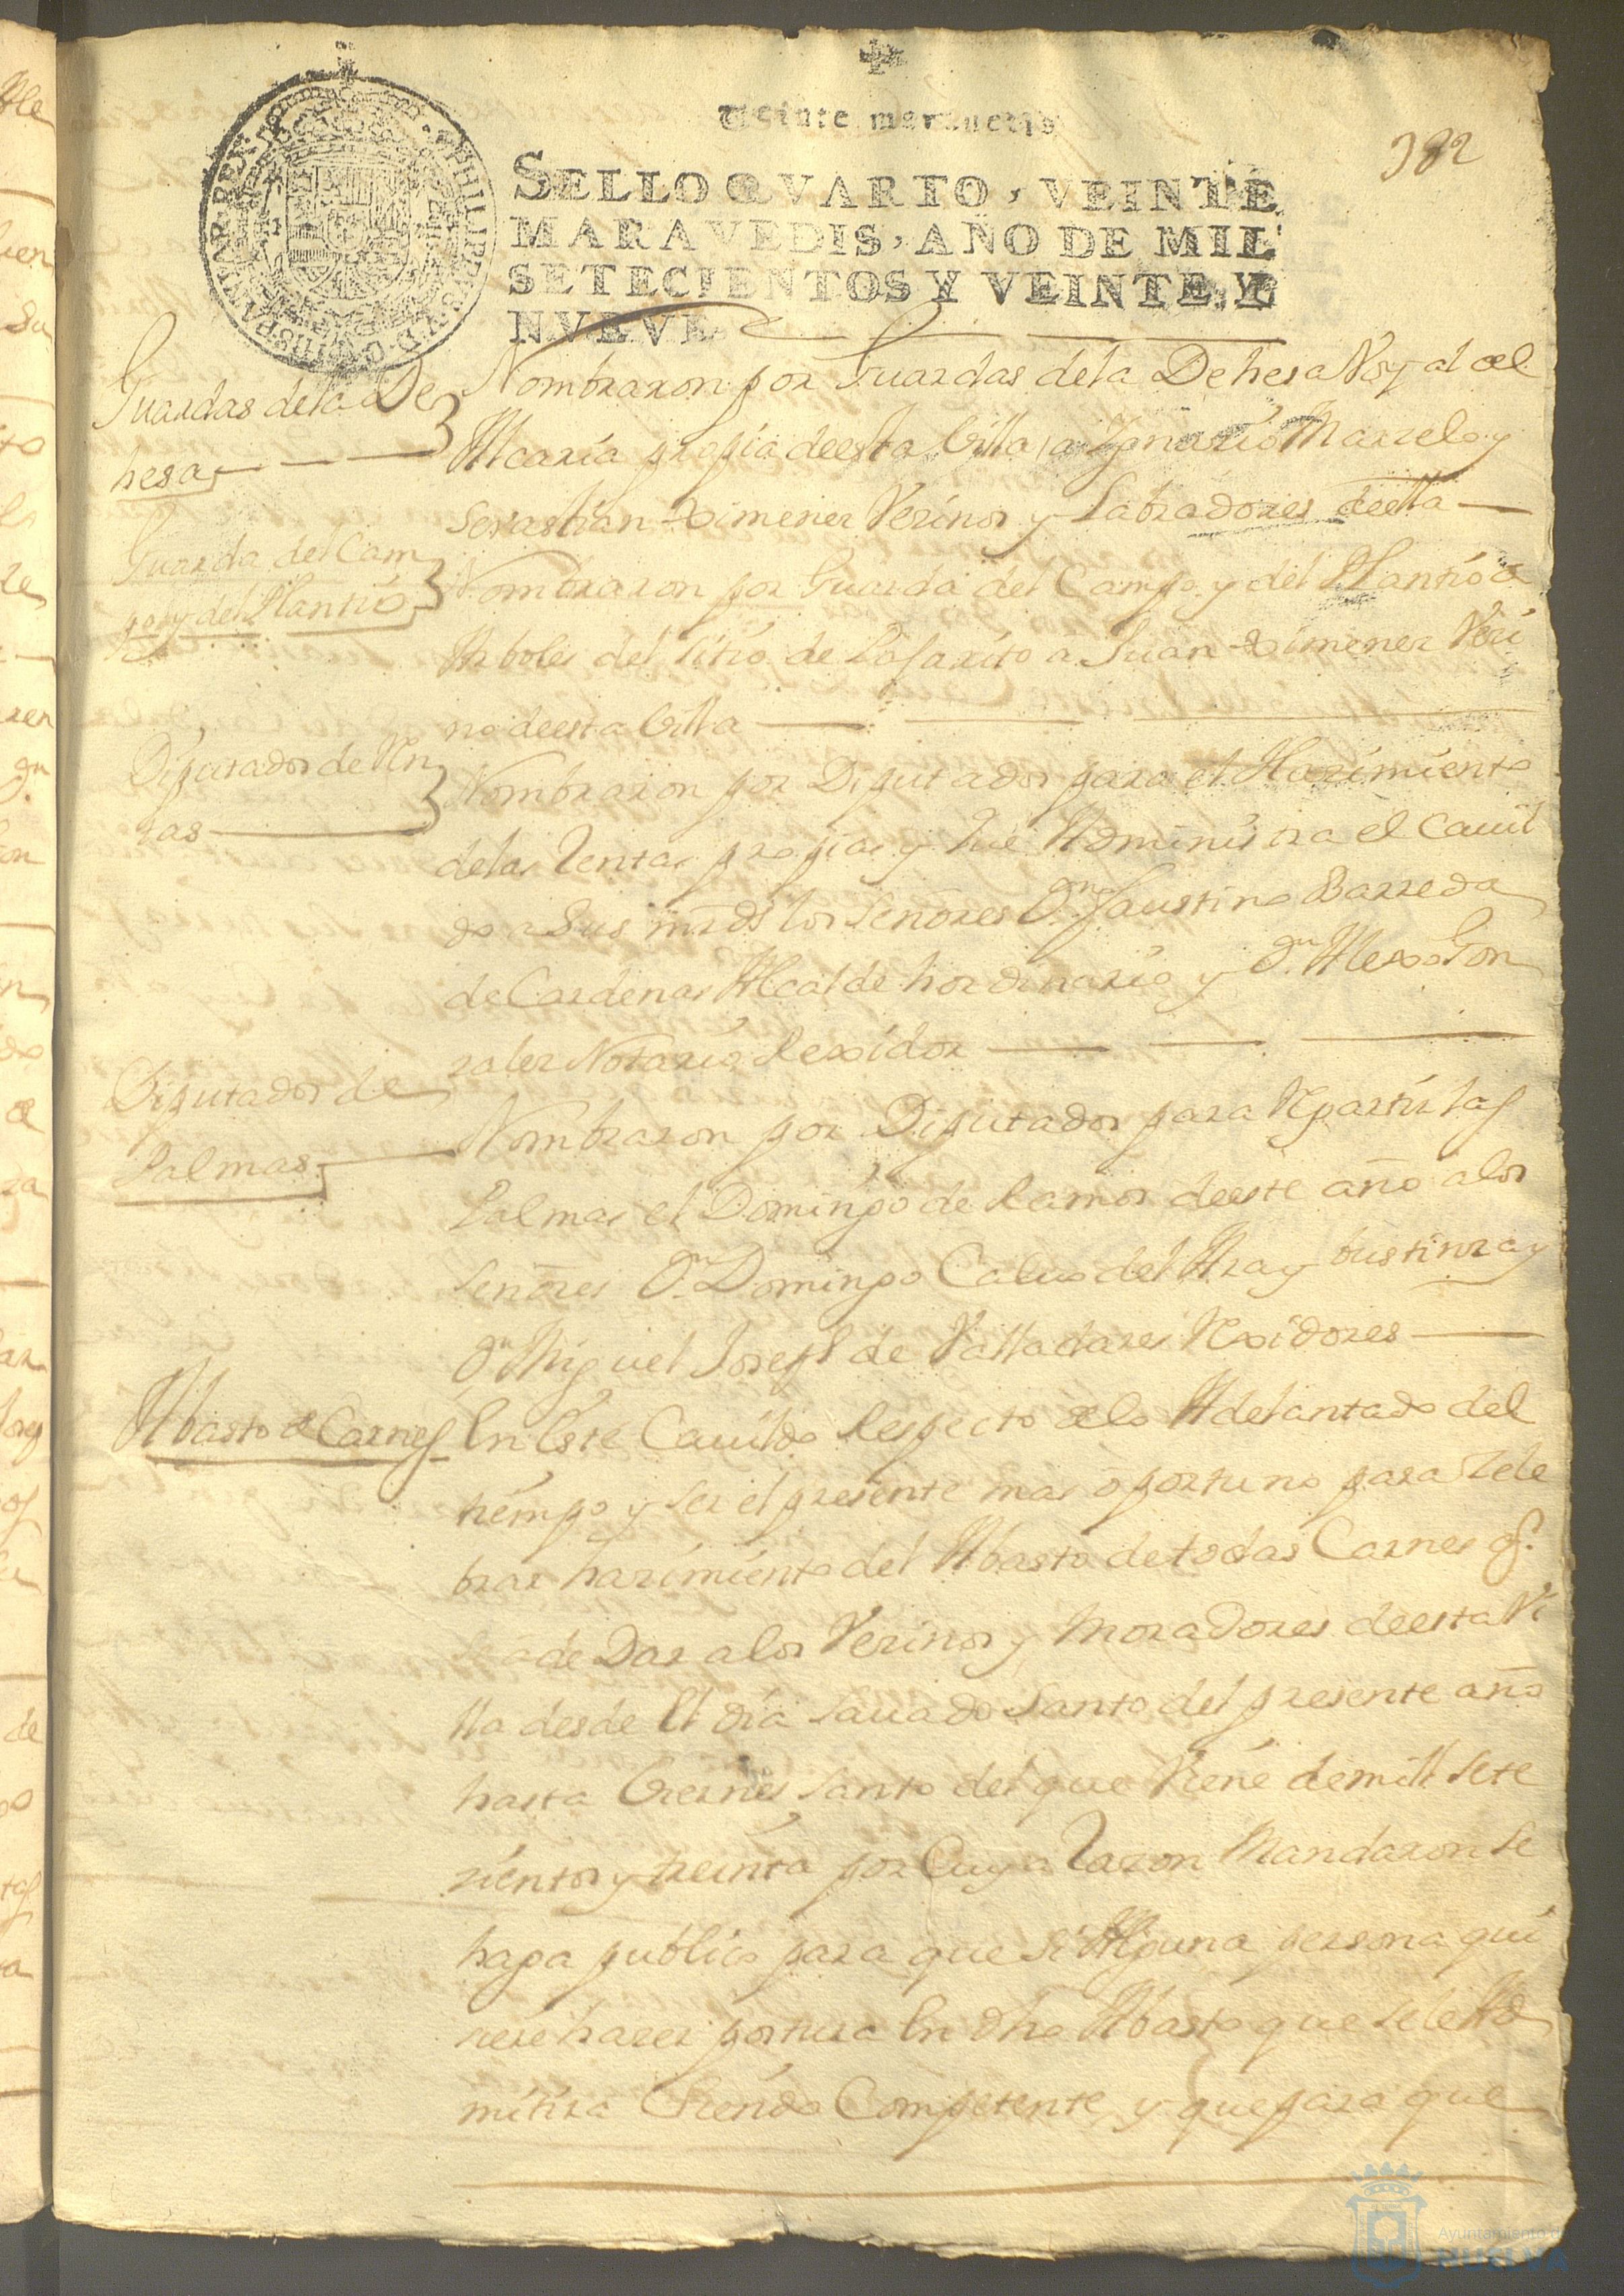 Veinte maravedis
382
SELLO QVARTO, VEINTE
MARAVEDIS, AÑO DE MIL
SETECIENTOS Y VEINTE Y
NVEVE
Guardas dela De
hesa
Nombraron por Guardas dela Dehesa Royal del
Alcaria propia deesta Villa, a Ygnazio Marzelo y
Sevastian Ximenez Vezinos y Labradores deella
Guarda del Cam
po y del Plantio
Nombraron por Guarda del Campo y del Plantio de
Arboles del sitio de Pajarito a Juan Ximenez Vezi
no deesta Villa
Diputados de Ren
tas
Nombraron por Diputados para el Hazimiento
delas Rentas propias y que Administra el Cauil
do a Sus mrds los señores Dn Faustino Barreda
de Cardenas Alcalde hordinario y Dn Alexo Gon
zalez Notario Rexidor
Diputados de
Palmas
Nombraron por Diputados para Repartir las
Palmas el Domingo de Ramos deeste año alos
señores Dn Domingo Caluo del Aray bustinza y
Dn Miguel Joseph de Valladares Rexidores
Abasto de Carnes
En Este Cauildo Respecto delo Adelantado del
tiempo y ser el presente mas oportuno para Zele
brar hazimiento del Abasto de todas Carnes q.
ade Dar alos Vezinos y Moradores deesta Vi
lla desde El dia sauado Santo del presente año
hasta Viernes Santo del que Viene de mill Sete
zientos y treinta por Cuya Razon Mandaron Se
haga publico para que si Alguna persona qui
siere hazer postura En dho Abasto que se le Ad
mitira Siendo Competente y que para que
Ayuntamiento de
HUELVA